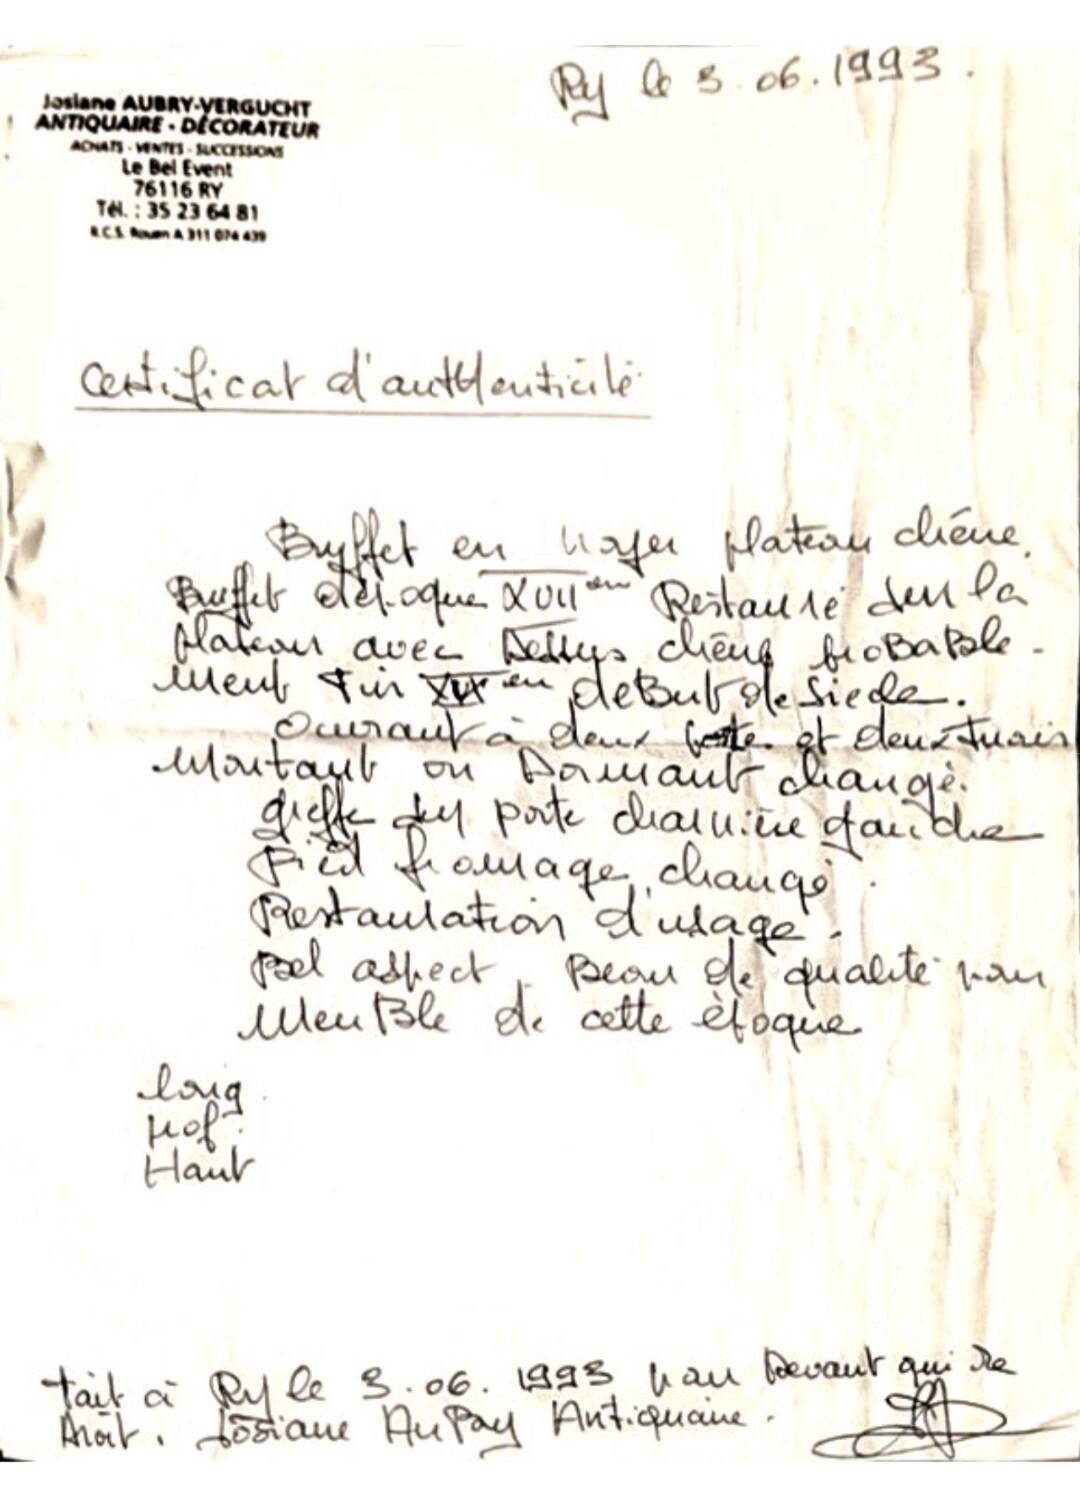 Ry le 3.06.1993.
Josiane AUBRY-VERGUCHT
ANTIQUAIRE - DÉCORATEUR
ACHATS - VENTES - SUCCESSIONS
Le Bel Event
76116 RY
Tél. : 35 23 64 81
R.C.S. Rouen A 311 074 439
Certificat d'authenticité
Buffet en noyer plateau chêne.
Buffet d'époque XVII em Restauré sur la
plateau avec Dessus chêne proBaBle-
ment Fin XIX em deBut de Siecle.
Ouvrant à deux porte et deux tiroir
Montant ou Dormant changé.
greffe sur porte charnière gauche
Pied fromage changé.
Restauration d'usage.
Bel aspect. Beau de qualité pour
MeuBle de cette époque
long.
Prof.
Haut
Fait à Ry le 3.06.1993 pour Devant qui De
Droit. Josiane AuBry Antiquaire.